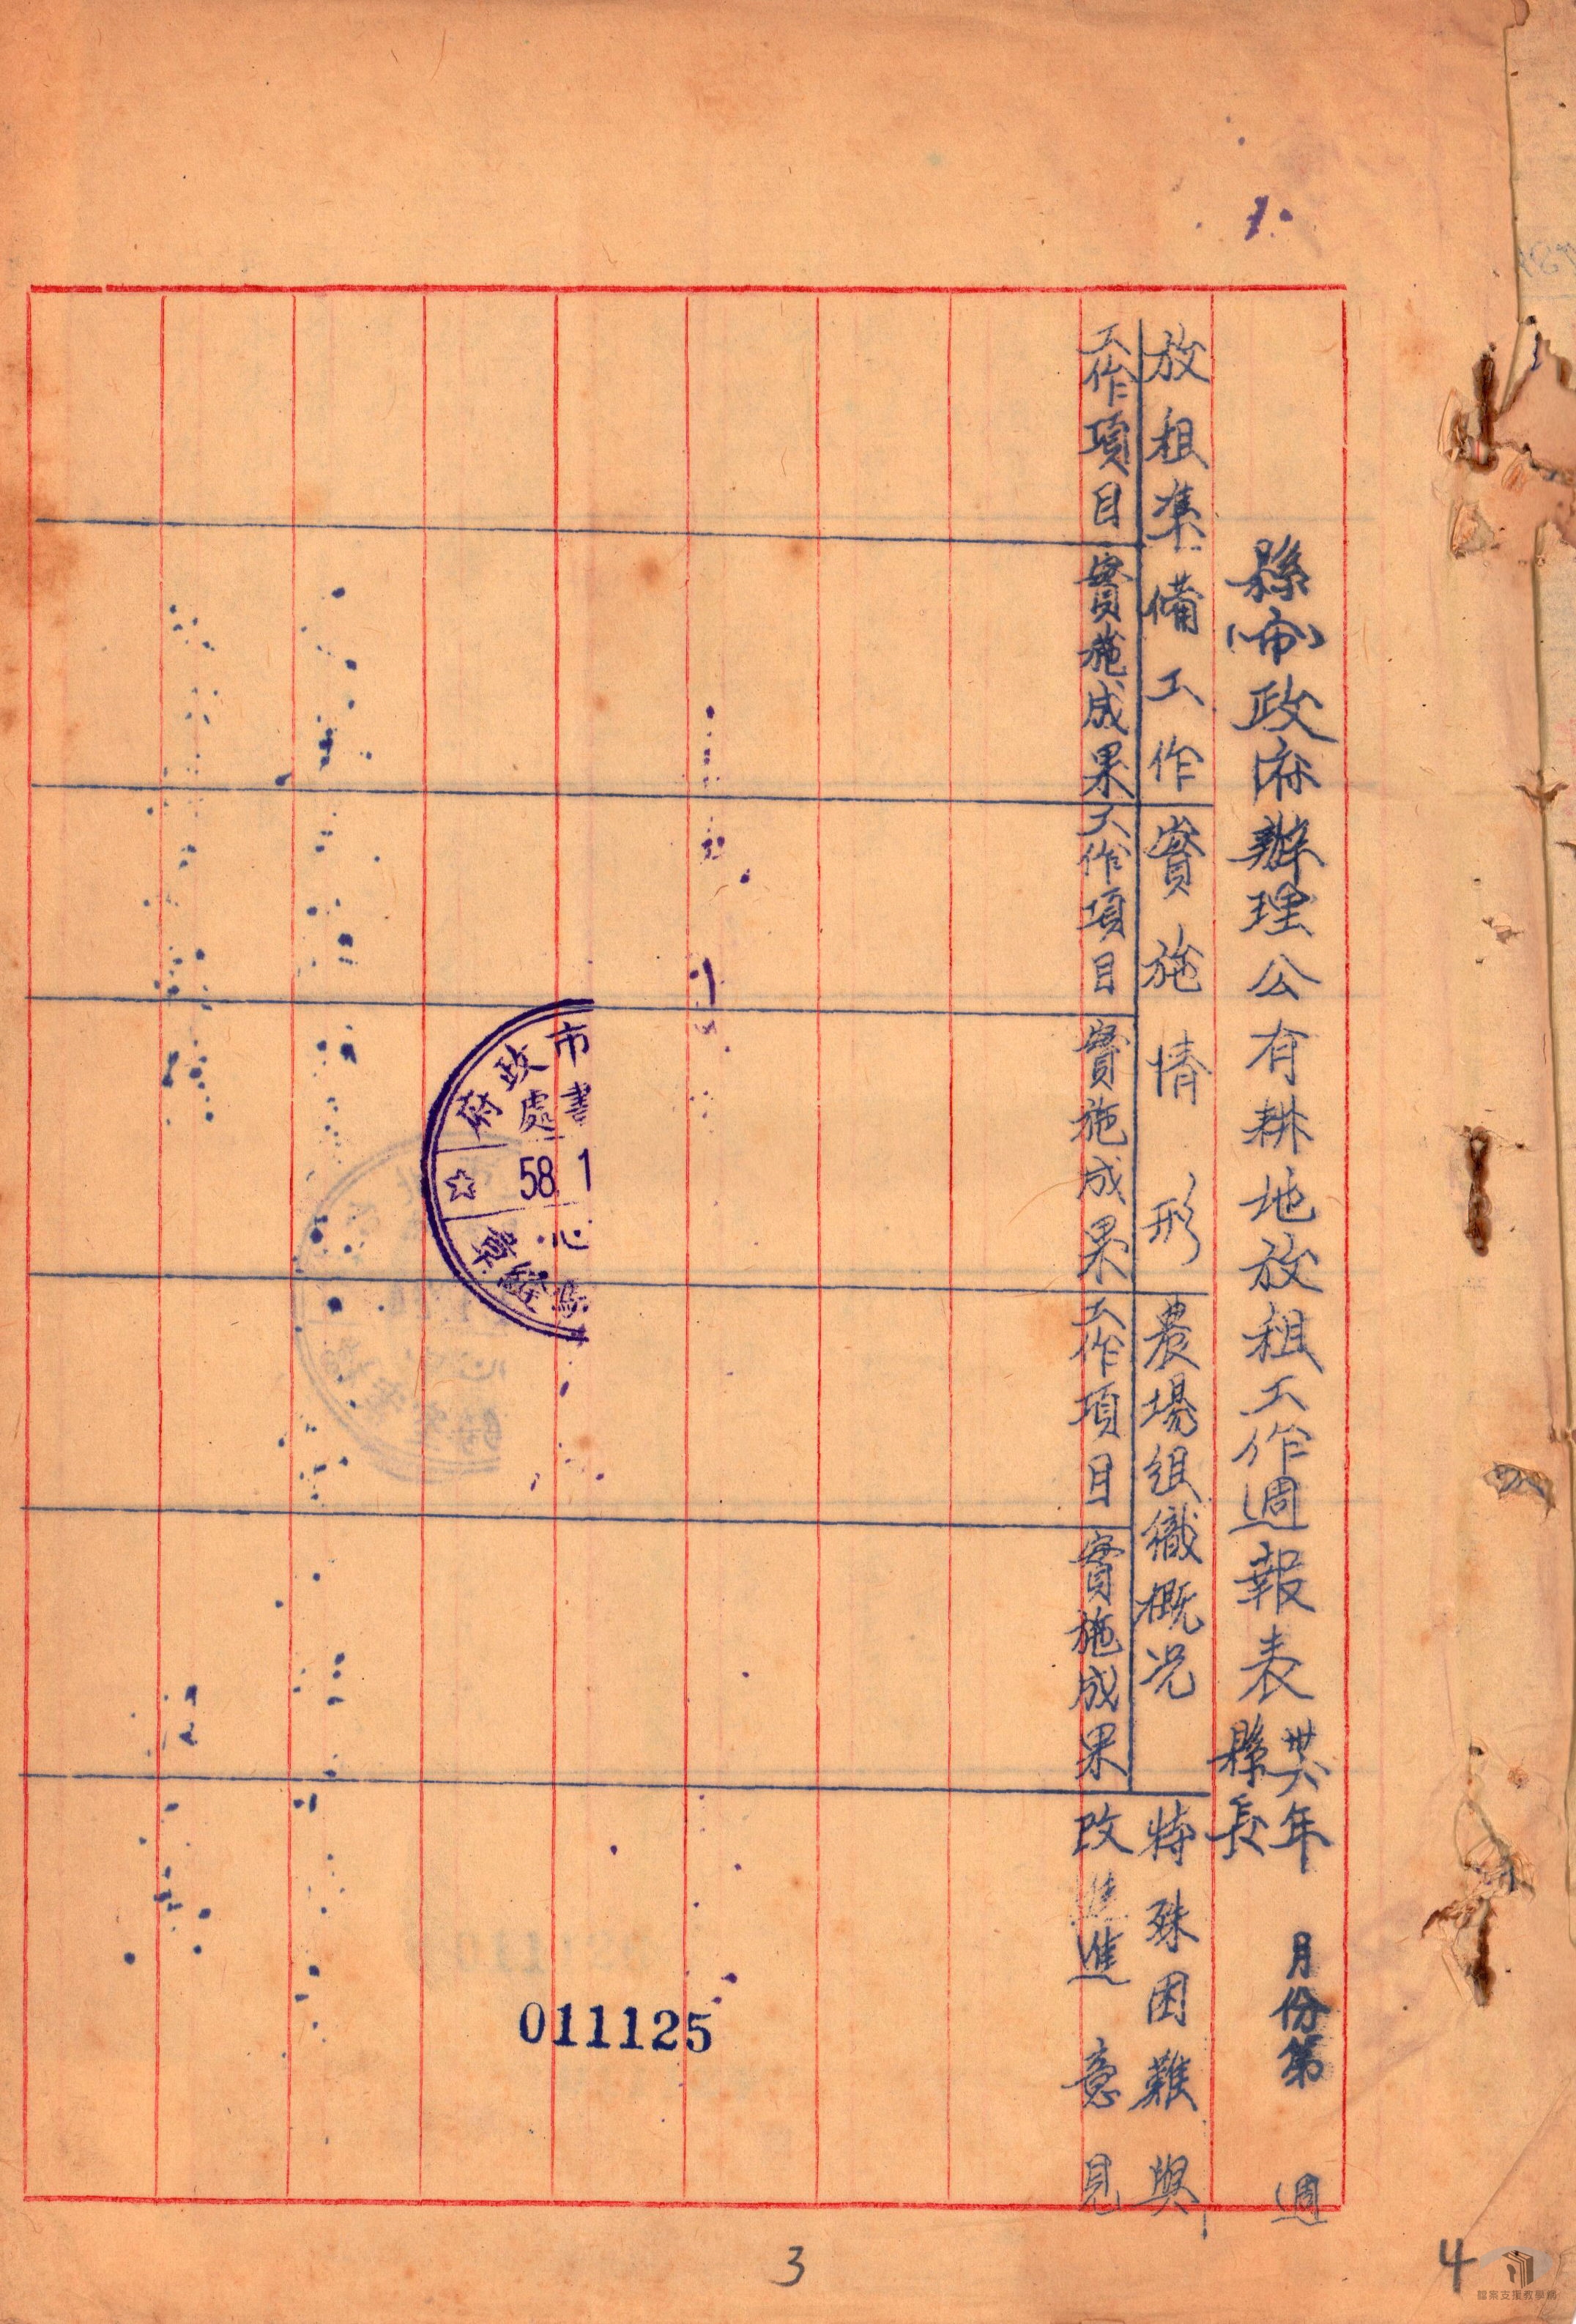 1.
縣(市)政府辦理公有耕地放租工作週報表
卅六年 月份第 週
縣長
放租準備工作
實施情形
農場組織概况
特殊困難與
工作項目
實施成果
工作項目
實施成果
工作項目
實施成果
改進意見
市政府
書處
58 1
☆
心
章
011125
3
4
檔案支援教學網